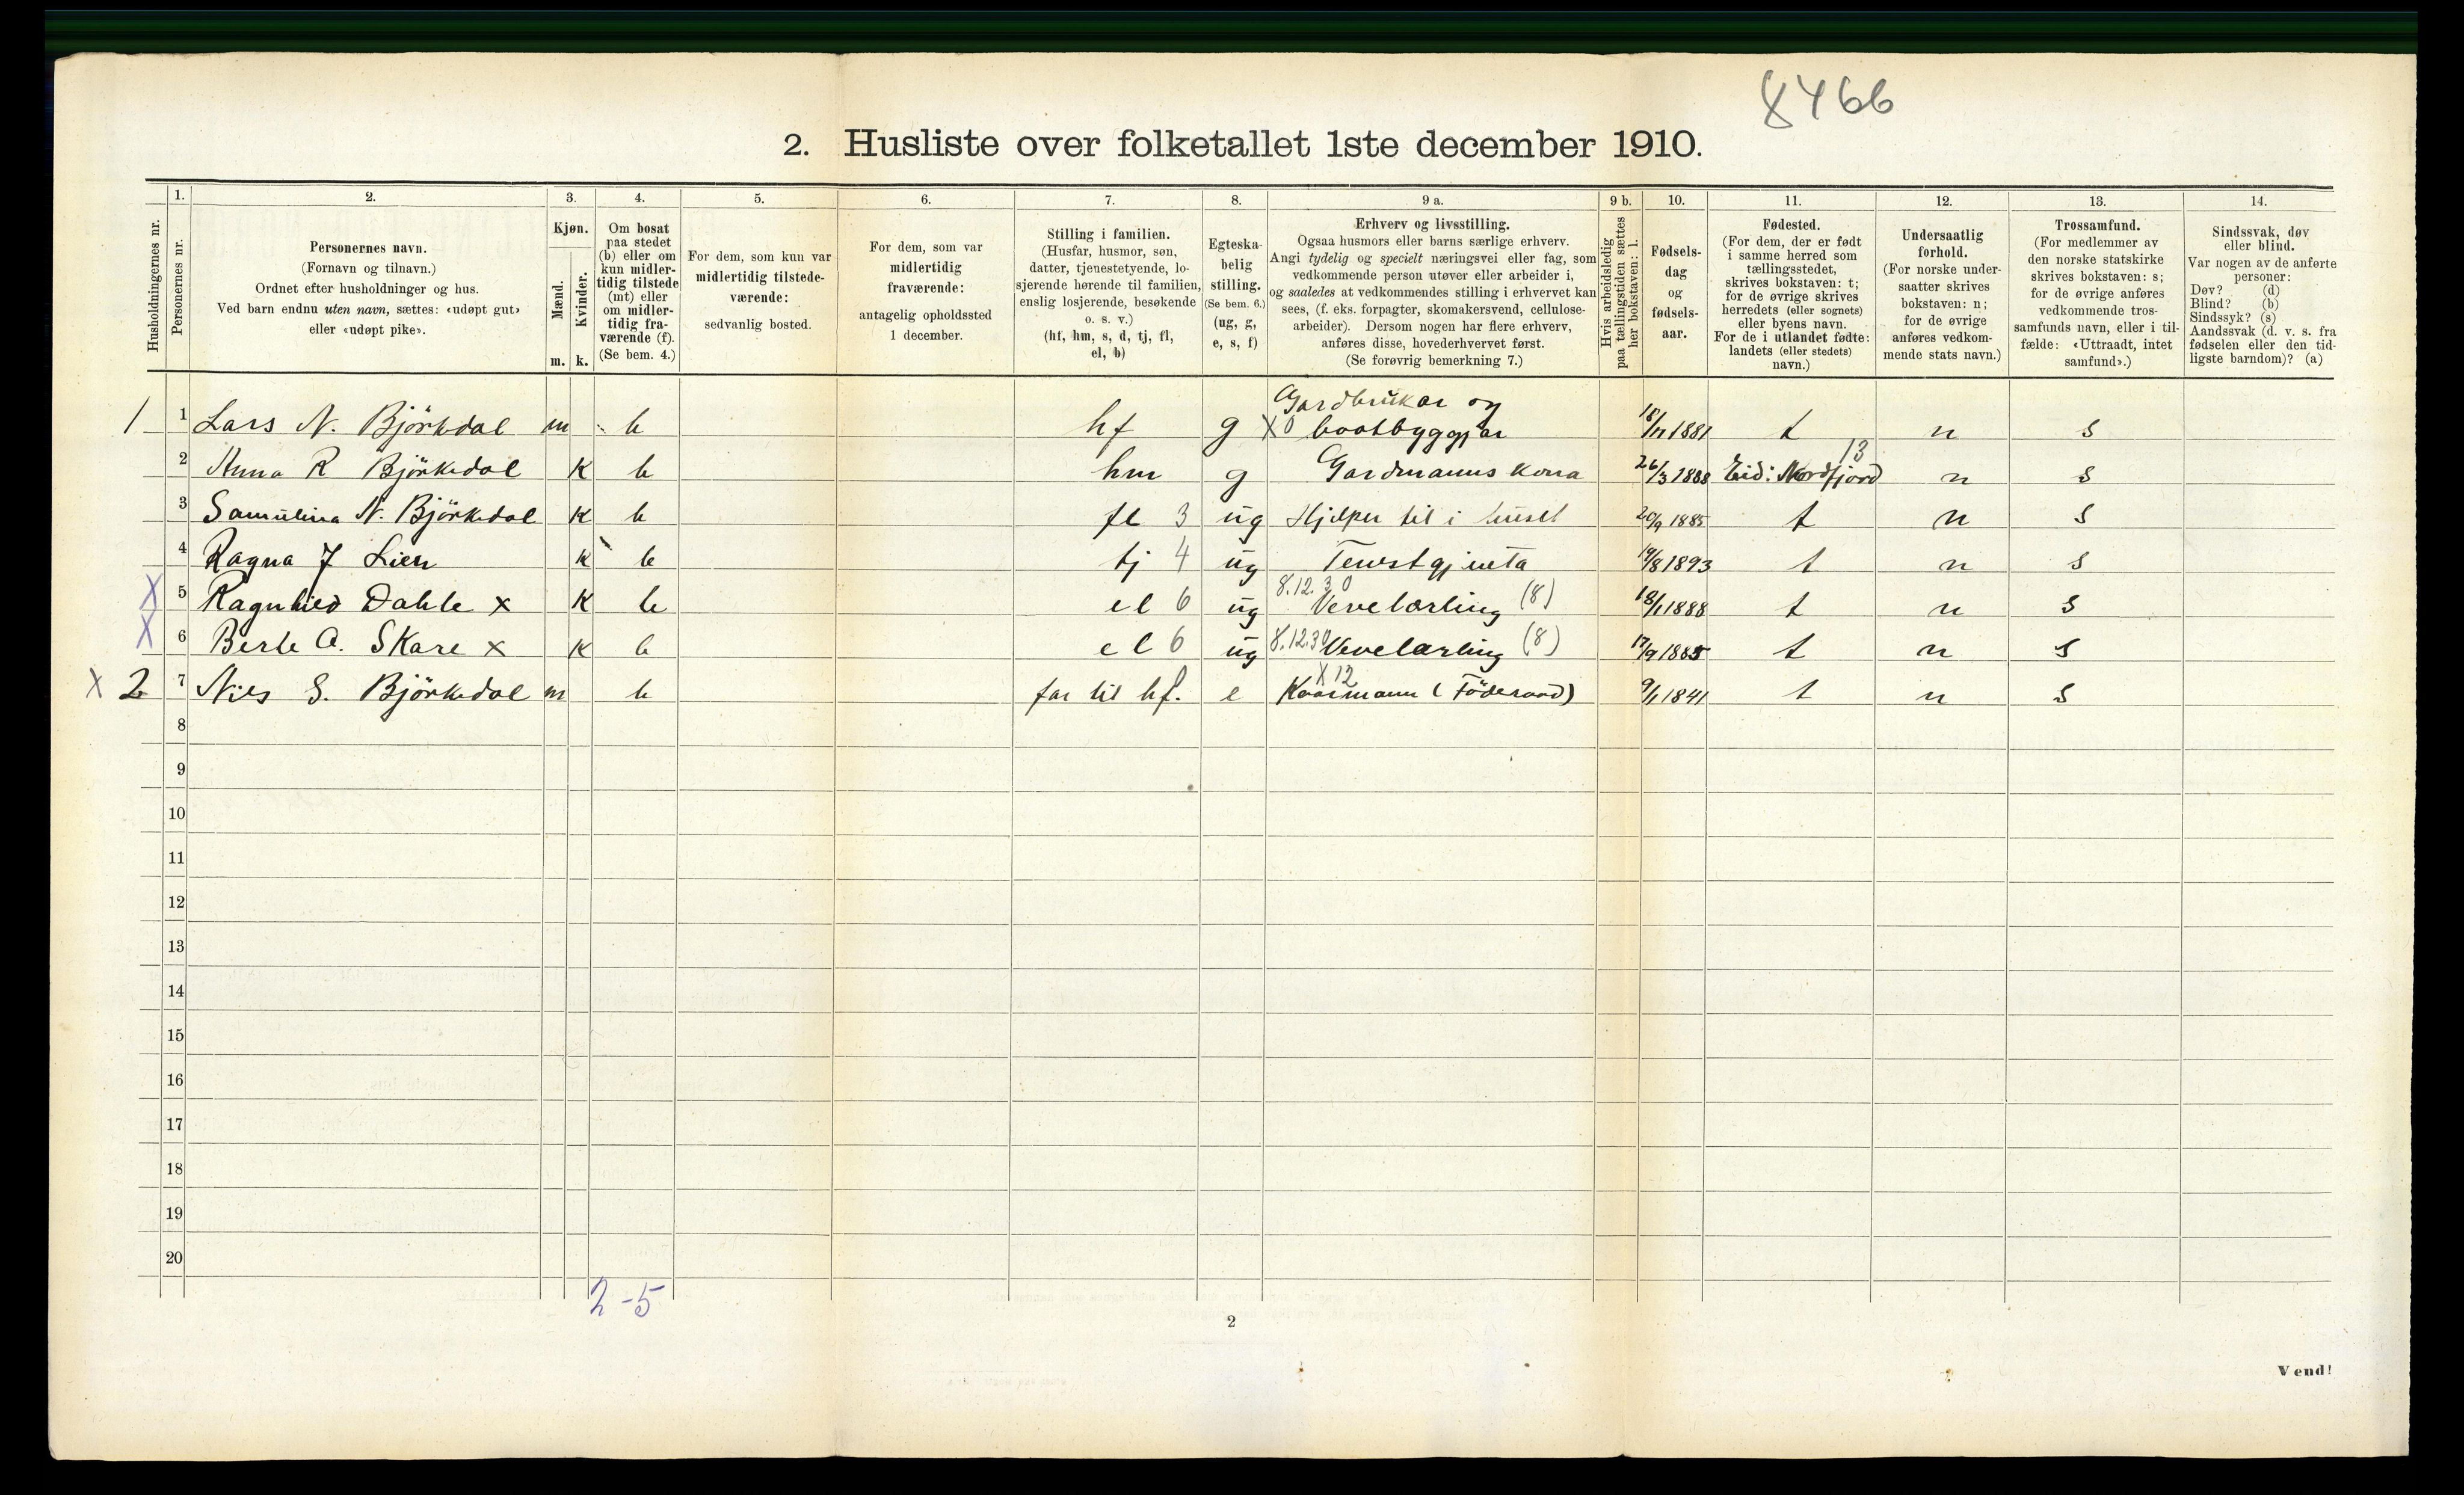 8466
2. Husliste over folketallet 1ste december 1910.
Husholdningernes nr.
1. Personernes nr.
2. Personernes navn.
(Fornavn og tilnavn.)
Ordnet efter husholdninger og hus.
Ved barn endnu uten navn, sættes: «udøpt gut»
eller «udøpt pike».
3. Kjøn.
Mænd. m.
Kvinder. k.
4. Om bosat
paa stedet
(b) eller om
kun midler-
tidig tilstede
(mt) eller
om midler-
tidig fra-
værende (f).
(Se bem. 4.)
5. For dem, som kun var
midlertidig tilstede-
værende:
sedvanlig bosted.
6. For dem, som var
midlertidig
fraværende:
antagelig opholdssted
1 december.
7. Stilling i familien.
(Husfar, husmor, søn,
datter, tjenestetyende, lo-
sjerende hørende til familien,
enslig losjerende, besøkende
o. s. v.)
(hf, hm, s, d, tj, fl,
el, b)
8. Egteska-
belig
stilling.
(Se bem. 6.)
(ug, g,
e, s, f)
9 a. Erhverv og livsstilling.
Ogsaa husmors eller barns særlige erhverv.
Angi tydelig og specielt næringsvei eller fag, som
vedkommende person utøver eller arbeider i,
og saaledes at vedkommendes stilling i erhvervet kan
sees, (f. eks. forpagter, skomakersvend, cellulose-
arbeider). Dersom nogen har flere erhverv,
anføres disse, hovederhvervet først.
(Se forøvrig bemerkning 7.)
9 b. Hvis arbeidsledig
paa tællingstiden sættes
her bokstaven: l.
10. Fødsels-
dag
og
fødsels-
aar.
11. Fødested.
(For dem, der er født
i samme herred som
tællingsstedet,
skrives bokstaven: t;
for de øvrige skrives
herredets (eller sognets)
eller byens navn.
For de i utlandet fødte:
landets (eller stedets)
navn.)
12. Undersaatlig
forhold.
(For norske under-
saatter skrives
bokstaven: n;
for de øvrige
anføres vedkom-
mende stats navn.)
13. Trossamfund.
(For medlemmer av
den norske statskirke
skrives bokstaven: s;
for de øvrige anføres
vedkommende tros-
samfunds navn, eller i til-
fælde: «Uttraadt, intet
samfund».)
14. Sindssvak, døv
eller blind.
Var nogen av de anførte
personer:
Døv? (d)
Blind? (b)
Sindssyk? (s)
Aandssvak (d. v. s. fra
fødselen eller den tid-
ligste barndom)? (a)
1 1 Lars N. Björkdal m b hf g X0 Gardbrukar og baatbyggjar 18/11 1881 t n s
2 Anna R Björkedal k b hm g Gardmanns kona 26/3 1888 Eid: Nordfjord 13 n s
3 Samulina N. Björkedal k b fl 3 ug Hjelper til i huset 20/9 1885 t n s
4 Ragna J Lien k b tj 4 ug Tenestgjenta 19/8 1893 t n s
X 5 Ragnhild Dahle x k b el 6 ug 8.12.30 Vevelærling (8) 18/1 1888 t n s
X 6 Berte A. Skare x k b el 6 ug 8.12.30 Vevelærling (8) 17/9 1885 t n s
X 2 7 Nils S. Björkedal m b far til hf. e X 12 Kaarmann (Föderaad) 9/1 1841 t n s
8
9
10
11
12
13
14
15
16
17
18
19
20
2-5
2
Vend!